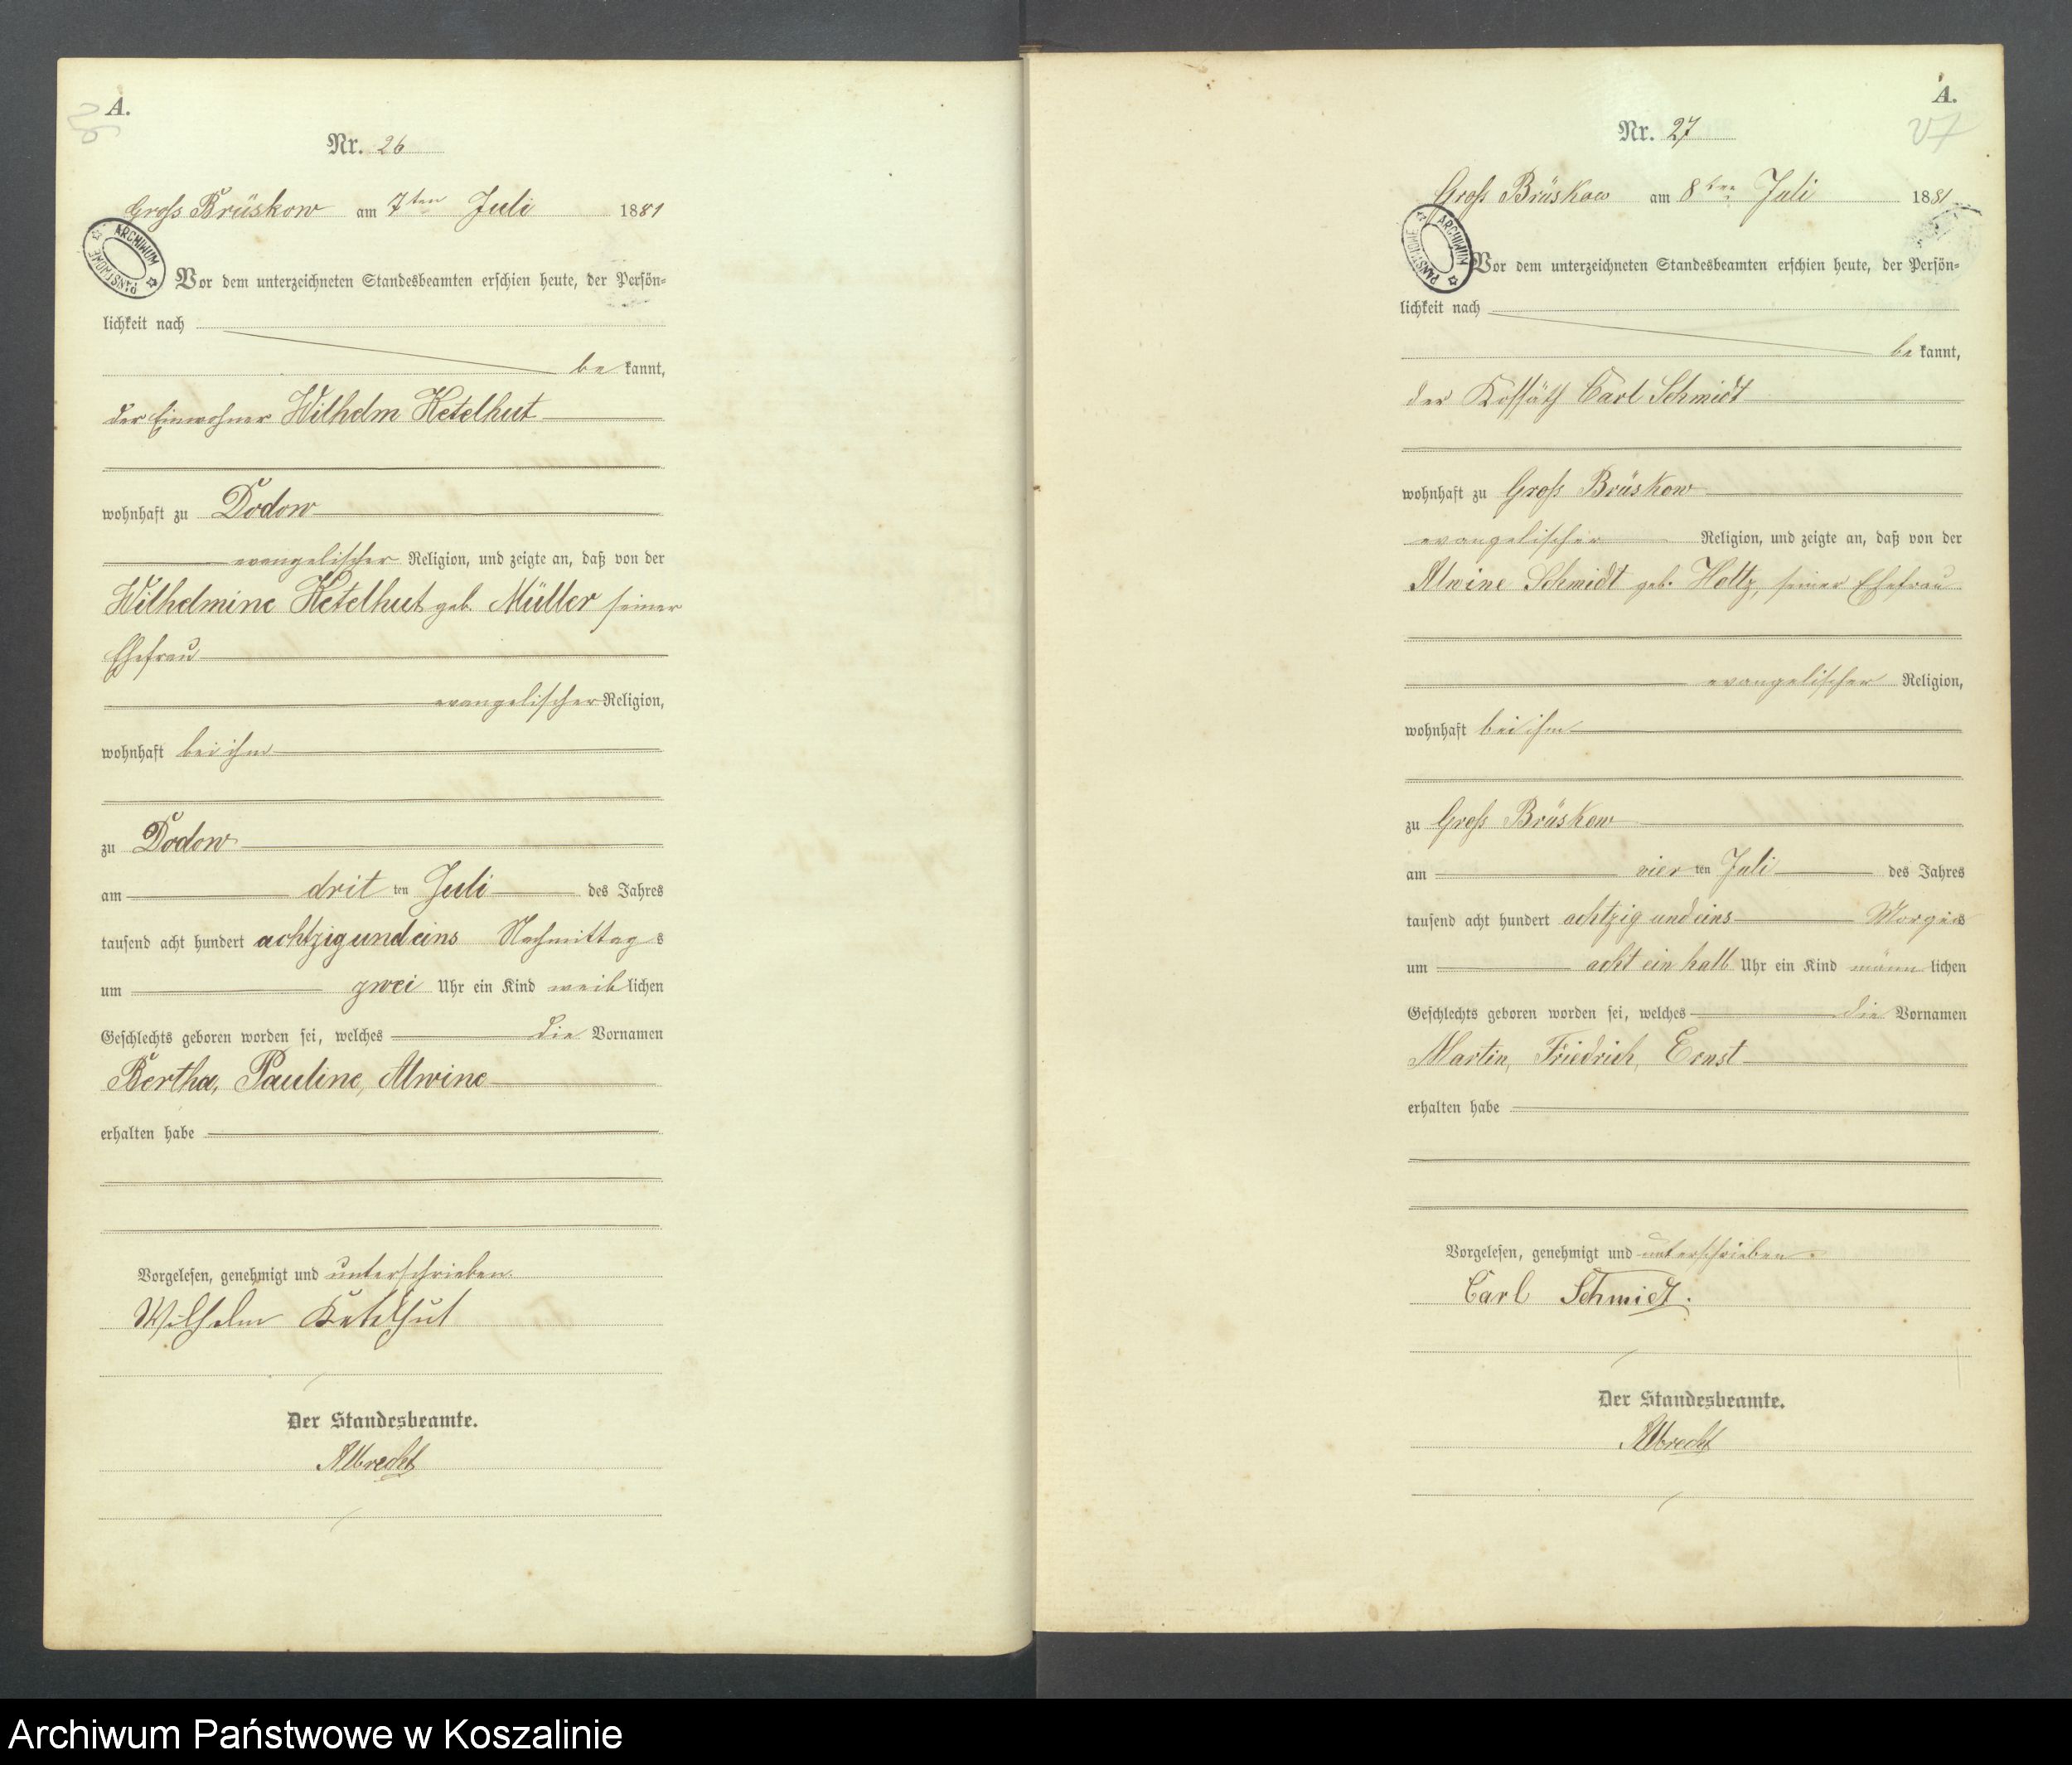 A.
26
Nr. 26
Gross Brüskow am 7ten Juli 1881
ARCHIWUM PAŃSTWOWE
Vor dem unterzeichneten Standesbeamten erschien heute, der Persön=
lichkeit nach
be kannt,
der Einwohner Wilhelm Ketelhut
wohnhaft zu Dodow
evangelischer Religion, und zeigte an, daß von der
Wilhelmine Ketelhut geb. Müller seiner
Ehefrau
evangelischer Religion,
wohnhaft bei ihm
zu Dodow
am drit ten Juli des Jahres
tausend acht hundert achtzig und eins Nachmittag s
um zwei Uhr ein Kind weib lichen
Geschlechts geboren worden sei, welches die Vornamen
Bertha, Pauline, Alwine
erhalten habe
Vorgelesen, genehmigt und unterschrieben.
Wilhelm Ketelhut
Der Standesbeamte.
Albrecht
A.
27
Nr. 27
Gross Brüskow am 8ten Juli 1881
ARCHIWUM PAŃSTWOWE
Vor dem unterzeichneten Standesbeamten erschien heute, der Persön=
lichkeit nach
be kannt,
der Kossäth Carl Schmidt
wohnhaft zu Gross Brüskow
evangelischer Religion, und zeigte an, daß von der
Alwine Schmidt geb. Holtz, seiner Ehefrau
evangelischer Religion,
wohnhaft bei ihm
zu Gross Brüskow
am vier ten Juli des Jahres
tausend acht hundert achtzig und eins Morgens
um acht ein halb Uhr ein Kind männ lichen
Geschlechts geboren worden sei, welches die Vornamen
Martin, Friedrich, Ernst
erhalten habe
Vorgelesen, genehmigt und unterschrieben.
Carl Schmidt.
Der Standesbeamte.
Albrecht
Archiwum Państwowe w Koszalinie